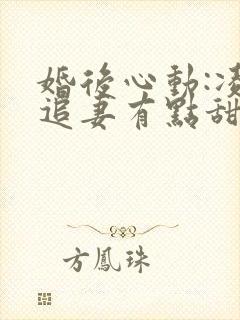 婚後心動:凌
追妻有點甜
方鳳珠